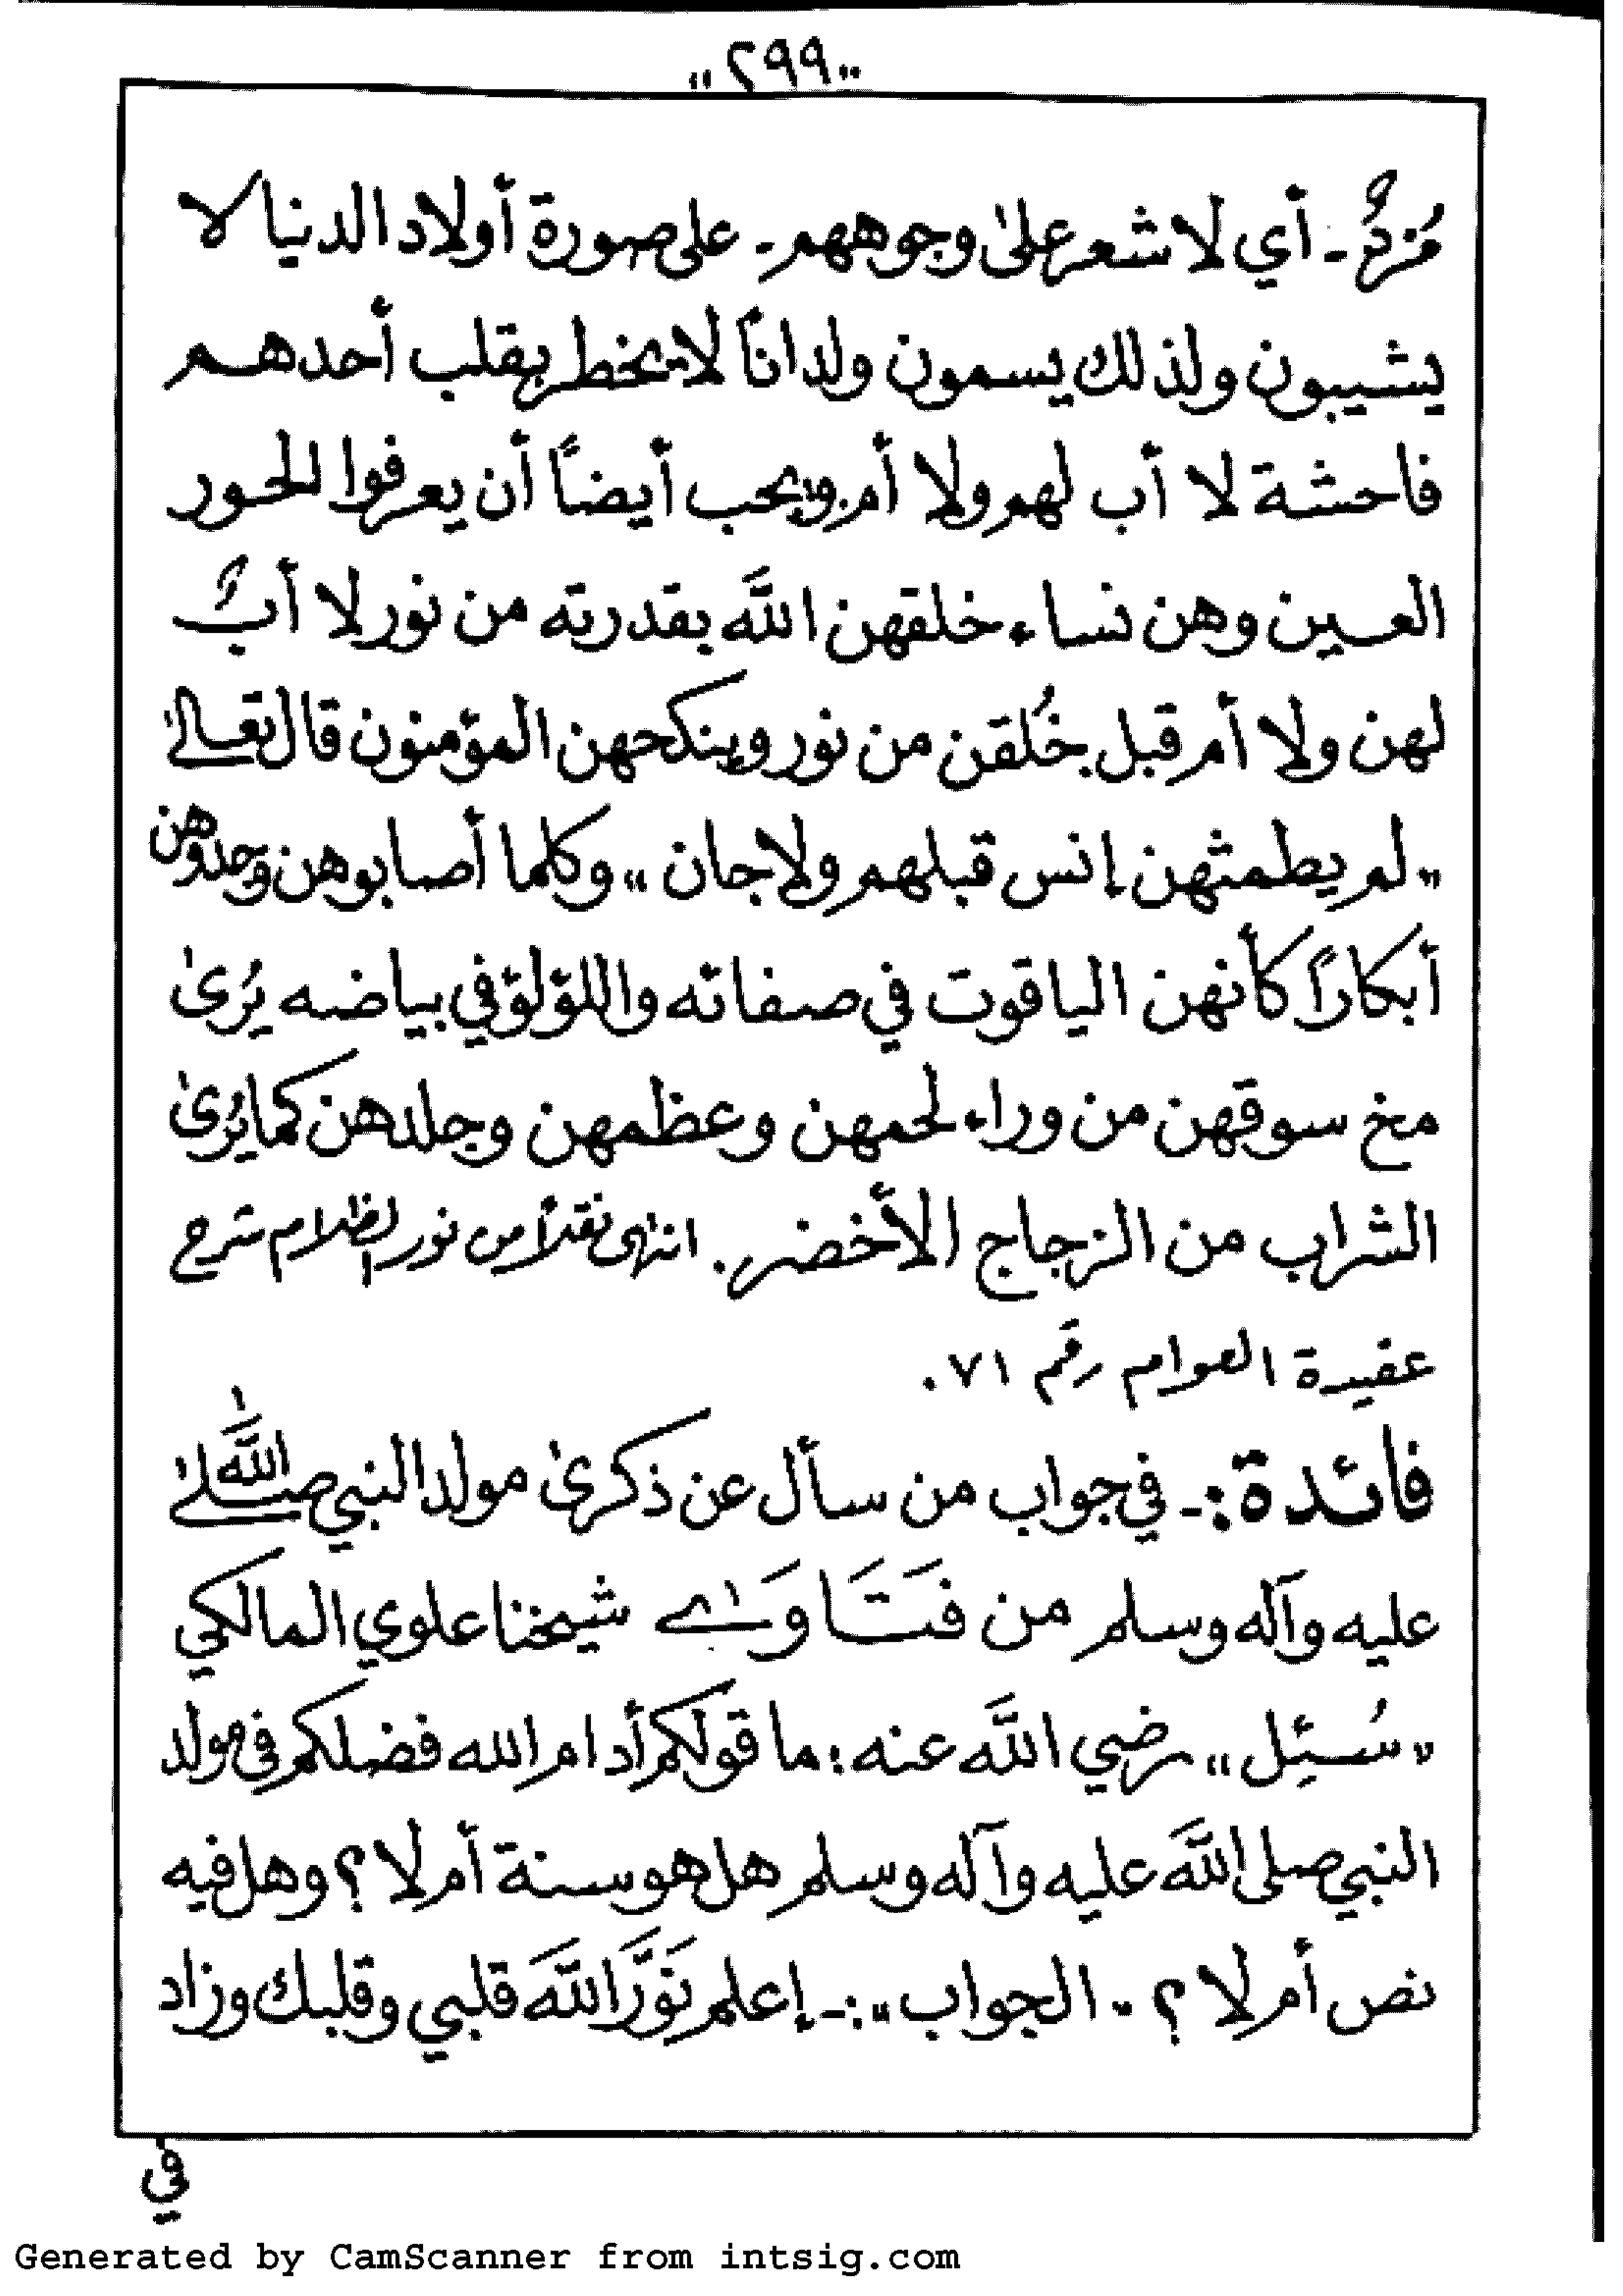 ،، ٢٩٩ ،،
مُردٌ ـ أي لا شعر علىٰ وجوههم ـ على صورة أولاد الدنيا لا
يشيبون ولذلك يسمون ولداناً لا يخطر بقلب أحدهم
فاحشة لا أب لهم ولا أم. ويجب أيضاً أن يعرفوا الحور
العين وهن نساء خلقهن اللَّه بقدرته من نور لا أبٌ
لهن ولا أم قبل خُلقن من نور وينكحهن المؤمنون قال تعالىٰ
،، لم يطمثهن إنس قبلهم ولا جان ،، وكلما أصابوهن وجدوهن
أبكاراً كأنهن الياقوت في صفائه واللؤلؤ في بياضه يُرىٰ
مخ سوقهن من وراء لحمهن وعظمهن وجلدهن كما يُرىٰ
الشراب من الزجاج الأخضر. انتهى نقلاً من نور الظلام شرح
عقيدة العوام رقم ٧١ .
فائدة :ـ في جواب من سأل عن ذكرىٰ مولد النبي صلىٰ اللَّه
عليه وآله وسلم من فَتَاوَىٰ شيخنا علوي المالكي
،، سُئِل ،، رضي اللَّه عنه : ما قولكم أدام الله فضلكم في مولد
النبي صلى اللَّه عليه وآله وسلم هل هو سنة أم لا ؟ وهل فيه
نص أم لا ؟ ،، الجواب ،، :ـ إعلم نَوَّرَ اللَّه قلبي وقلبك وزاد
في
Generated by CamScanner from intsig.com